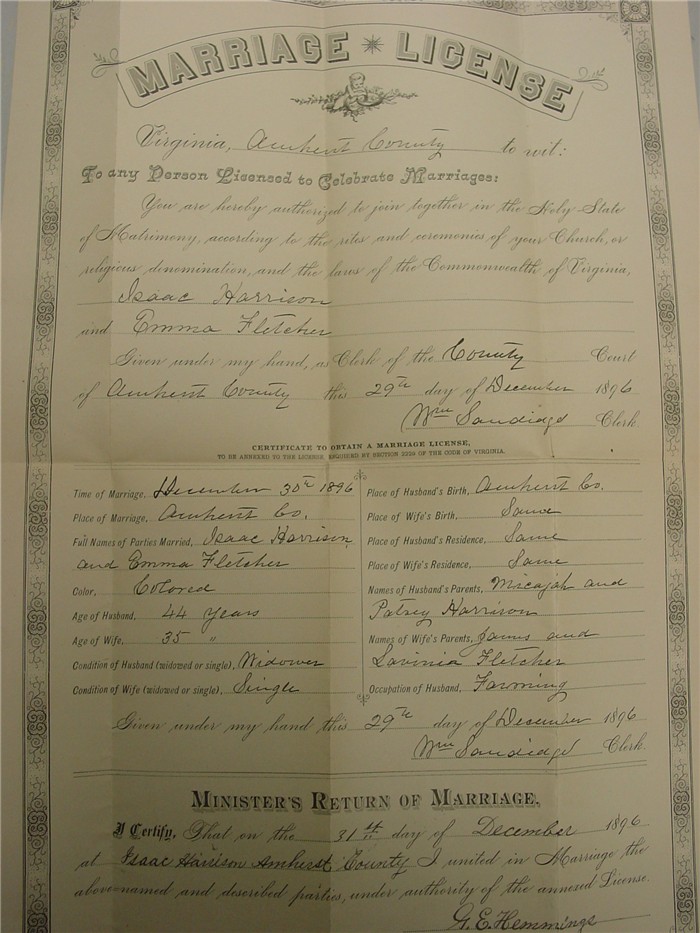 MARRIAGE LICENSE
Virginia, Amherst County to wit:
To any Person Licensed to Celebrate Marriages:
You are hereby authorized to join together in the Holy State
of Matrimony, according to the rites and ceremonies of your Church, or
religious denomination, and the laws of the Commonwealth of Virginia,
Isaac Harrison
and Emma Fletcher
Given under my hand, as Clerk of the County Court
of Amherst County this 29th day of December 1896
Wm Sandidge Clerk.
CERTIFICATE TO OBTAIN A MARRIAGE LICENSE,
TO BE ANNEXED TO THE LICENSE, REQUIRED BY SECTION 2229 OF THE CODE OF VIRGINIA.
Time of Marriage, December 30th 1896
Place of Marriage, Amherst Co.
Full Names of Parties Married, Isaac Harrison
and Emma Fletcher
Color, Colored
Age of Husband, 44 years
Age of Wife, 35 "
Condition of Husband (widowed or single), Widower
Condition of Wife (widowed or single), Single
Place of Husband's Birth, Amherst Co.
Place of Wife's Birth, Same
Place of Husband's Residence, Same
Place of Wife's Residence, Same
Names of Husband's Parents, Micajah and
Patsey Harrison
Names of Wife's Parents, James and
Lavinia Fletcher
Occupation of Husband, Farming
Given under my hand this 29th day of December 1896
Wm Sandidge Clerk.
MINISTER'S RETURN OF MARRIAGE.
I Certify, That on the 31st day of December 1896
at Isaac Harrison Amherst County I united in Marriage the
above-named and described parties, under authority of the annexed License.
G. E. Hemmings